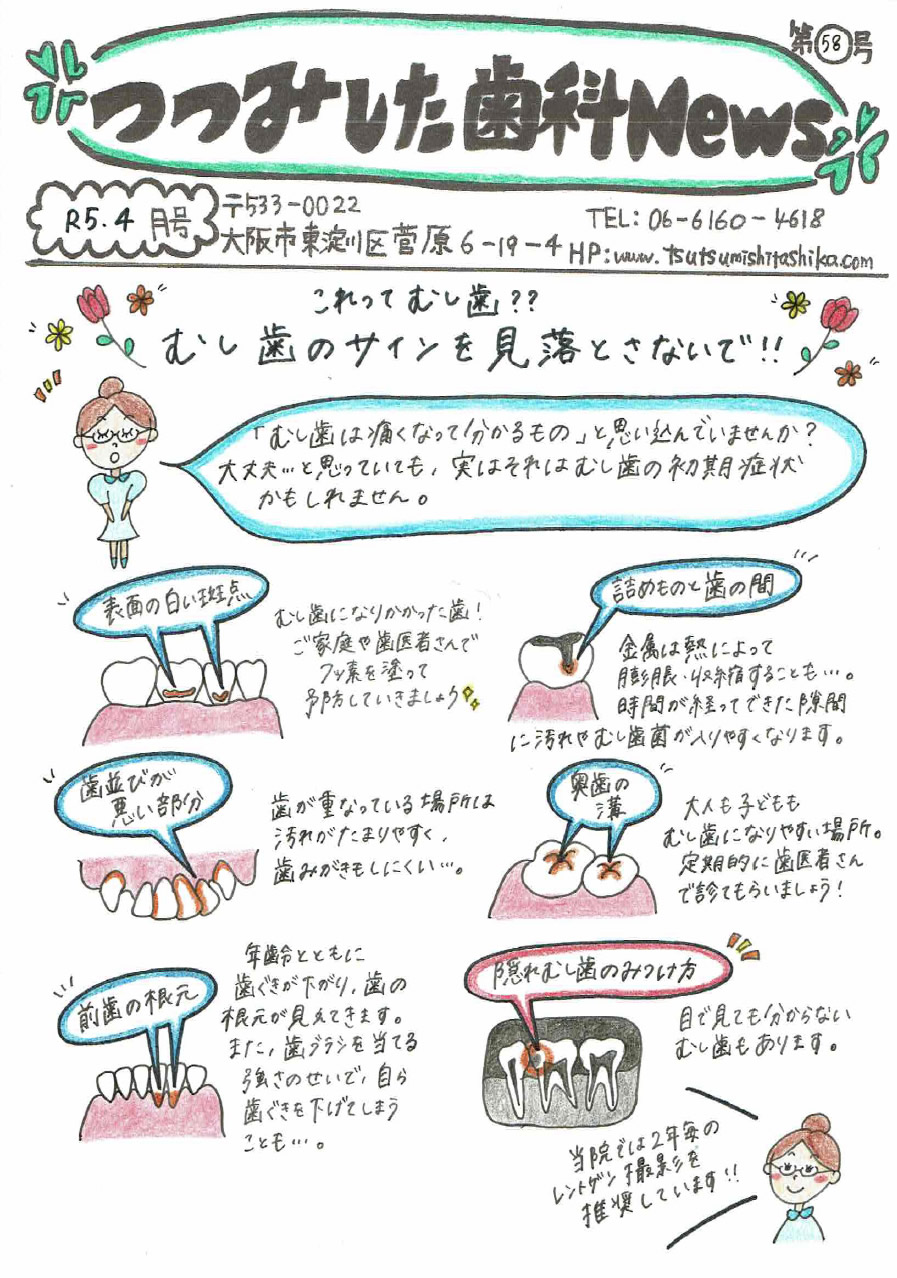 第58号
つつみした歯科News
R5.4月号
〒533-0022
大阪市東淀川区菅原6-19-4
TEL: 06-6160-4618
HP: www.tsutsumishitashika.com
これってむし歯??
むし歯のサインを見落とさないで!!
「むし歯は痛くなって分かるもの」と思い込んでいませんか?
大丈夫…と思っていても、実はそれはむし歯の初期症状
かもしれません。
表面の白い斑点
むし歯になりかかった歯!
ご家庭や歯医者さんで
フッ素を塗って
予防していきましょう
詰めものと歯の間
金属は熱によって
膨脹・収縮することも…。
時間が経ってできた隙間
に汚れやむし歯菌が入りやすくなります。
歯並びが
悪い部分
歯が重なっている場所は
汚れがたまりやすく、
歯みがきもしにくい…。
奥歯の
溝
大人も子どもも
むし歯になりやすい場所。
定期的に歯医者さん
で診てもらいましょう!
前歯の根元
年齢とともに
歯ぐきが下がり、歯の
根元が見えてきます。
また、歯ブラシを当てる
強さのせいで、自ら
歯ぐきを下げてしまう
ことも…。
隠れむし歯のみつけ方
目で見ても分からない
むし歯もあります。
当院では2年毎の
レントゲン撮影を
推奨しています!!